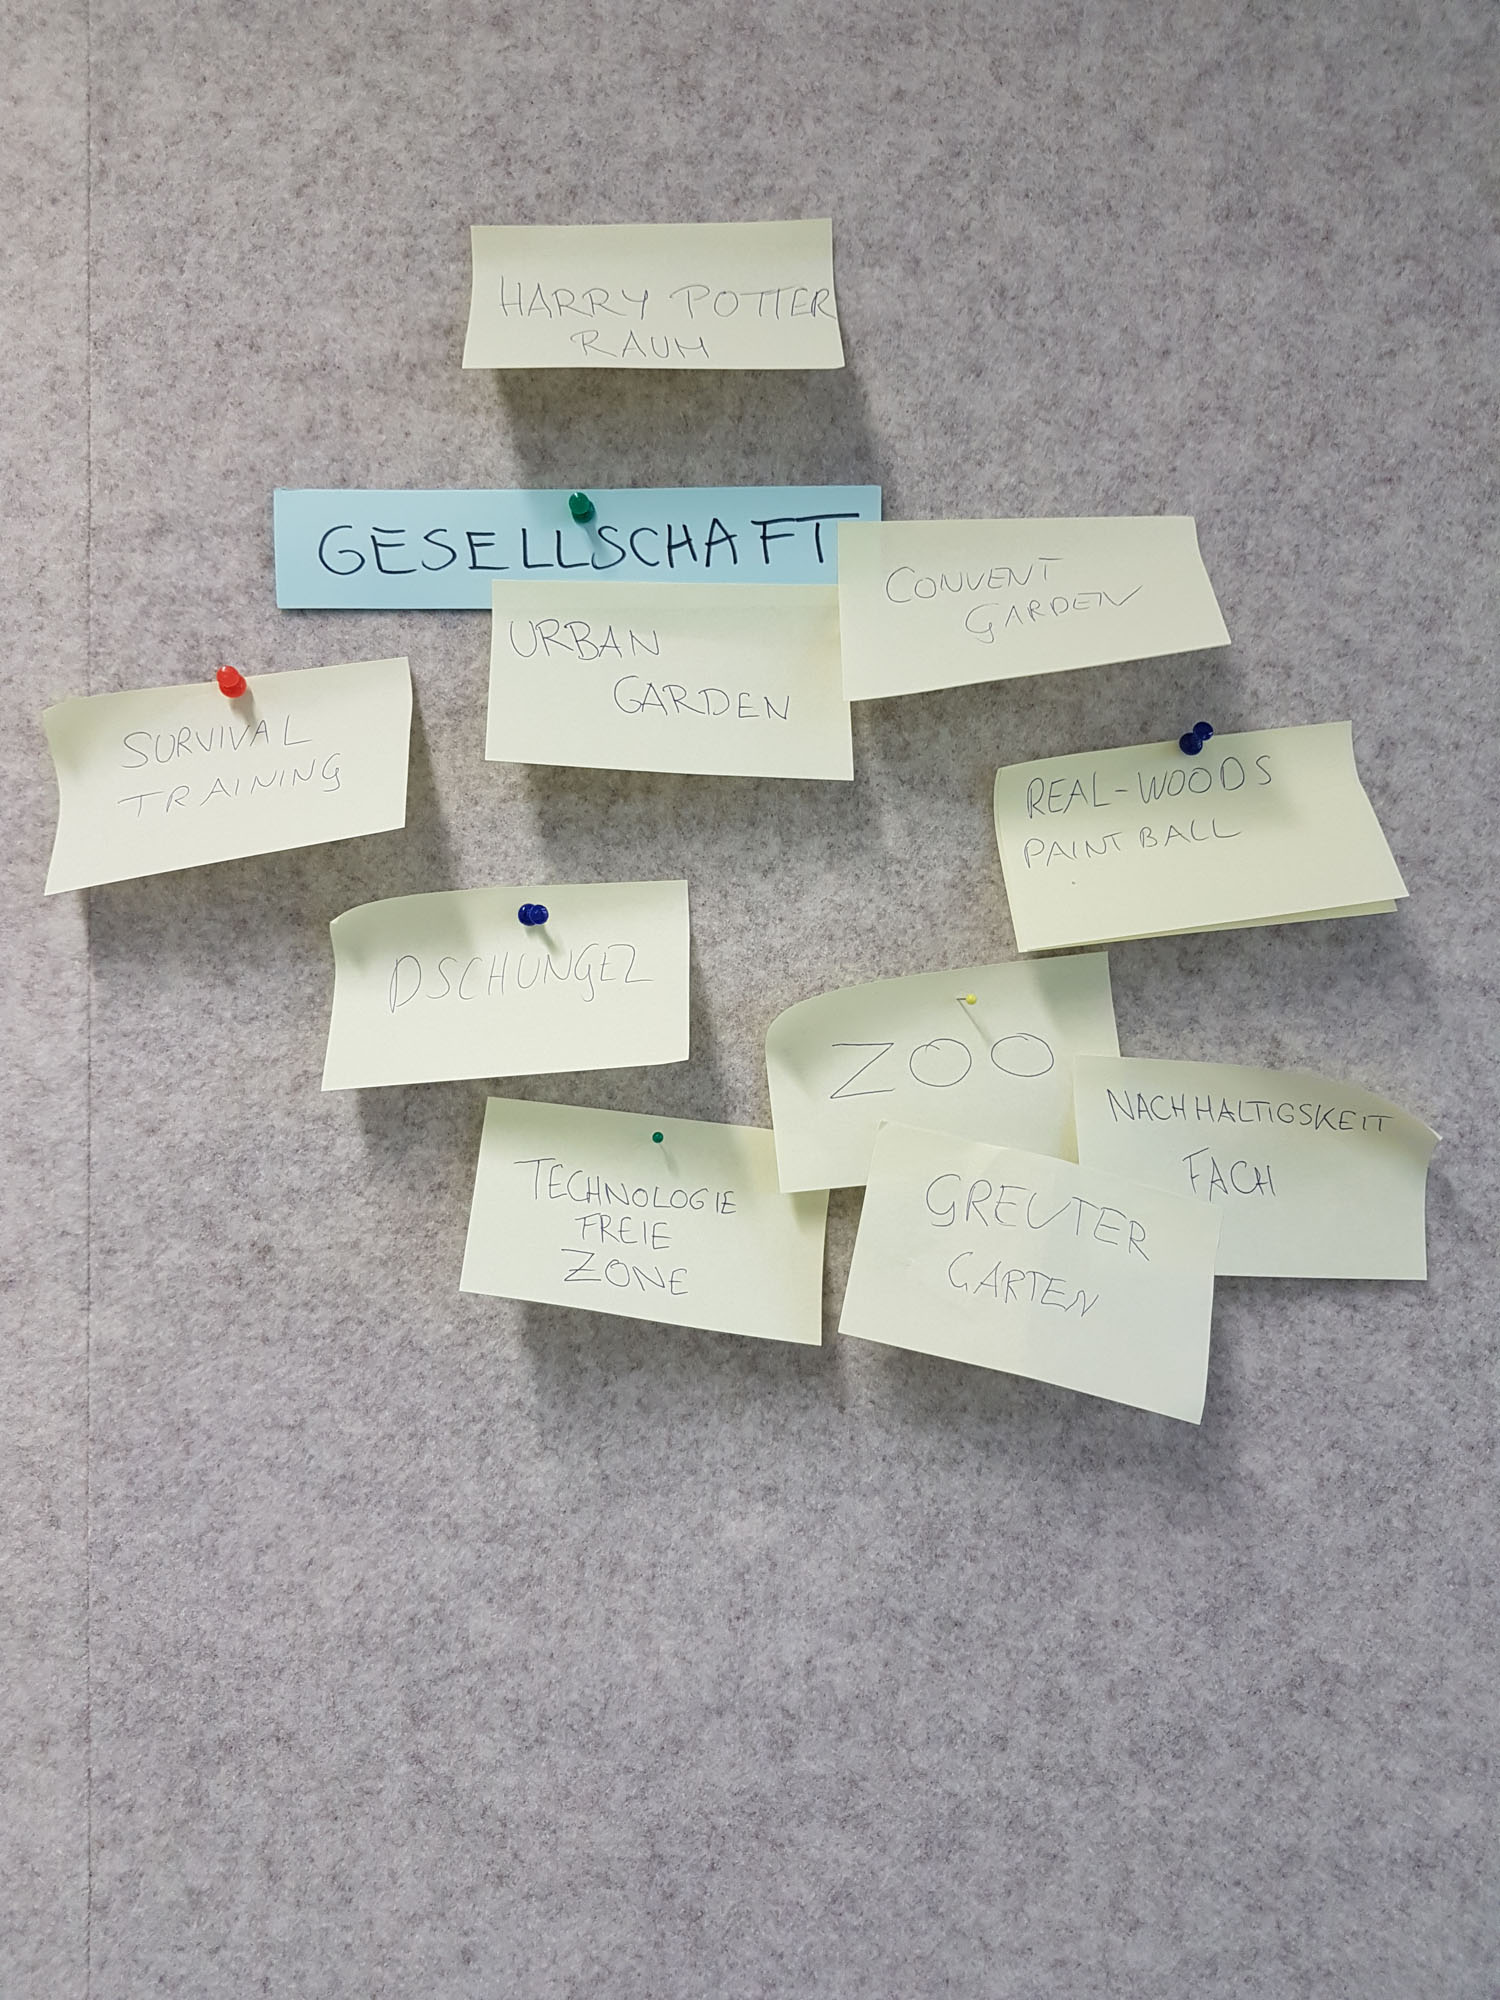 HARRY POTTER
RAUM
GESELLSCHAFT
CONVENT
GARDEN
URBAN
GARDEN
SURVIVAL
TRAINING
REAL-WOODS
PAINTBALL
DSCHUNGEL
ZOO
NACHHALTIGSKEIT
FACH
TECHNOLOGIE
FREIE
ZONE
GREUTER
GARTEN